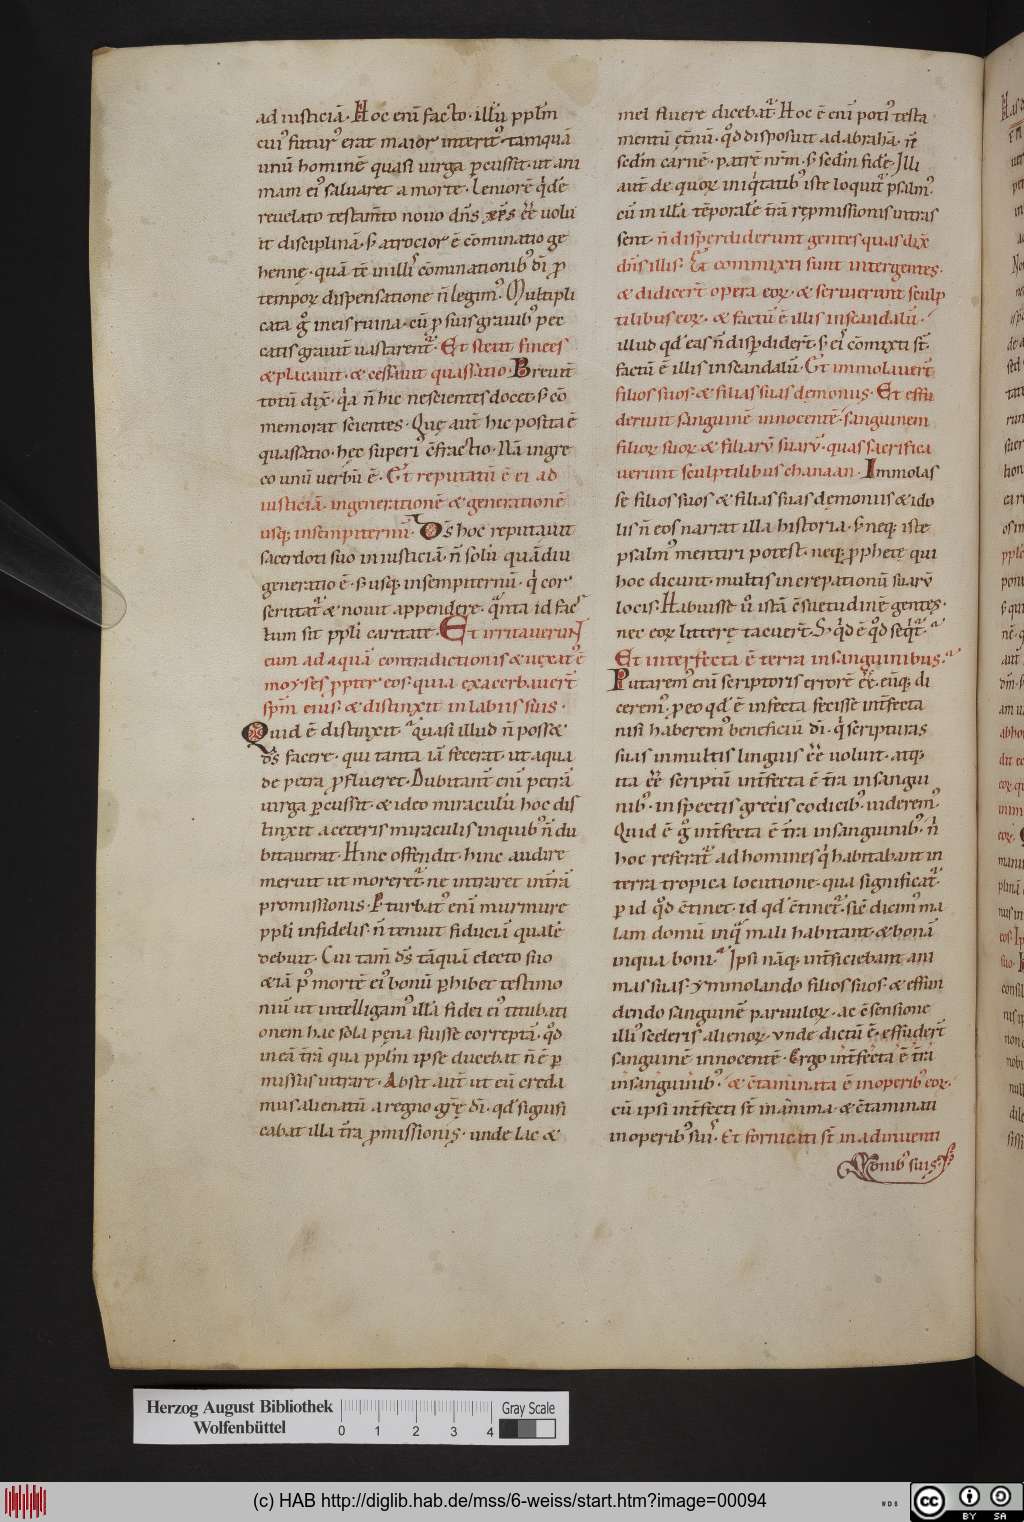 ad iusticiā. Hoc enī facto. illū pplm̄
cui᾽ futur᾽ erat maior interit᾽. tamquā
unū hominē quasi uirga pcussit. ut ani
mam ei᾽ saluaret a morte. Leniorē q̇dē
reuelato testam̄to nouo dn̄s xp̄s eē uolu
it disciplinā. s; atrocior ē cōminatio ge
hennę. quā tē in illi᾽ cōminationib᾽ dī p
tempoꝝ dispensatione n̄ legim᾽. Multipli
cata ḡ in eis ruina. cū p suis grauib᾽ pec
catis grauit̄ uastarent᾽. Et stetit finees
& placauit. & cessauit quassatio. Breuit̄
totū dix̄. q̇a n̄ hic nescientes docet. s; cō
memorat scientes. Quę aut̄ hic posita ē
quassatio. hęc superi᾽ ē fractio. Nā in gre
co unū uerbū ē. Et reputatū ē ei ad
iusticiā. in generationē & generationē
usq; in sempiternū. Ds̄ hoc reputauit
sacerdoti suo in iusticiā. n̄ solū quādiu
generatio ē. s; usq; in sempiternū. q̇ cor
scrutat᾽ & nouit appendere. q̇nta id fac
tum sit ppli caritate. Et irritauerunt
eum ad aquā contradictionis & uexat᾽ ē
moyses ppter eos. quia exacerbauer̄t
spm̄ eius. & distinxit in labiis suis.
Quid ē distinxit. quasi illud n̄ posset
ds̄ facere. qui tanta iā fecerat. ut aqua
de petra pflueret. Dubitant̄ enī petrā
uirga pcussit. & ideo miraculū hoc dis
tinxit a ceteris miraculis in quib᾽ n̄ du
bitauerat. Hinc offendit. hinc audire
meruit ut moreret᾽. ne intraret in t̄rā
promissionis. Pturbat᾽ enī murmure
ppli infidelis. n̄ tenuit fiduciā qualē
debuit. Cui tam̄ ds̄ tāquā electo suo
& iā p᾽ mortē ei᾽ bonū phibet testimo
niū. ut intelligam᾽ illā fidei ei᾽ titubati
onem hac sola pęna fuisse correptā. q̇d
in eā t̄rā qua pplm̄ ipse ducebat n̄ ē p
missus intrare. Absit aut̄ ut eū creda
mus alienatū a regno gr̄ę dī. qd̄ signifi
cabat illa t̄ra pmissionis. unde lac &
mel fluere dicebat᾽. Hoc ē enī poti᾽ testa
mentū ęt̄nū. q̇d disposuit ad abrahā. n̄
sedm̄ carnē. patrē nr̄m. s; sedm̄ fidē. Illi
aut̄ de quoꝝ iniq̇tatib᾽ iste loquit᾽ psalm᾽.
cū in illā tēporalē t̄rā repmissionis intras
sent. n̄ disperdiderunt gentes quas dix̄
dn̄s illis. Et commixti sunt inter gentes.
& didicer̄t opera eoꝝ. & seruierunt sculp
tilibus eoꝝ. & factū ē illis in scandalū.
illud qd̄ eas n̄ disp̄dider̄t. s; ei᾽ cōmixti st̄.
factū ē illis in scandalū. Et immolauer̄t
filios suos. & filias suas demoniis. Et effu
derunt sanguinē innocentē. sanguinem
filioꝝ suoꝝ & filiarū suarū. quas sacrifica
uerunt sculptilibus chanaan. Immolas
se filios suos & filias suas demoniis & ido
lis n̄ eos narrat illa historia. s; neq; iste
psalm᾽ mentiri potest. neq; pphetę qui
hoc dicunt. multis increpationū suarū
locis. Habuisse u᾽ istā cōsuetudinē gentes.
nec eoꝝ litterę tacuer̄t. S; q̇d ē q̇d seq̇t᾽.
Et interfecta ē terra in sanguinibus.
Putarem᾽ enī scriptoris errorē eē. eūq; di
cerem᾽. p eo qd̄ ē infecta fecisse int̄fecta
nisi haberem᾽ beneficiū dī. q̇ scripturas
suas in multis linguis eē uoluit. atq;
ita eē scriptū int̄fecta ē t̄ra in sangui
nib᾽. inspectis grecis codicib᾽ uiderem᾽.
Quid ē ḡ int̄fecta ē t̄ra in sanguinib᾽. n̄
hoc referat᾽ ad homines q̇ habitabant in
terra tropica locutione. qua significat᾽
p id q̇d cōtinet. id qd̄ cōtinet᾽. sic̄ dicim᾽ ma
lam domū in q̇ mali habitant. & bonā
in qua boni. Ipsi nāq; int̄ficiebant ani
mas suas. ymmolando filios suos. & effun
dendo sanguinē paruuloꝝ. ac cōsensione
illi᾽ sceleris᾽ alienoꝝ. vnde dictū ē. effuder̄t
sanguinē innocentē. Ergo int̄fecta ē t̄ra
in sanguinib᾽. & cōtaminata ē in operib᾽ eoꝝ.
cū ipsi int̄fecti st̄ in anima. & cōtaminati
in operib᾽ suis. Et fornicati st̄ in adinuenti
onib᾽ suis.
Herzog August Bibliothek
Wolfenbüttel
0 1 2 3 4
Gray Scale
(c) HAB http://diglib.hab.de/mss/6-weiss/start.htm?image=00094
WDB
cc BY SA